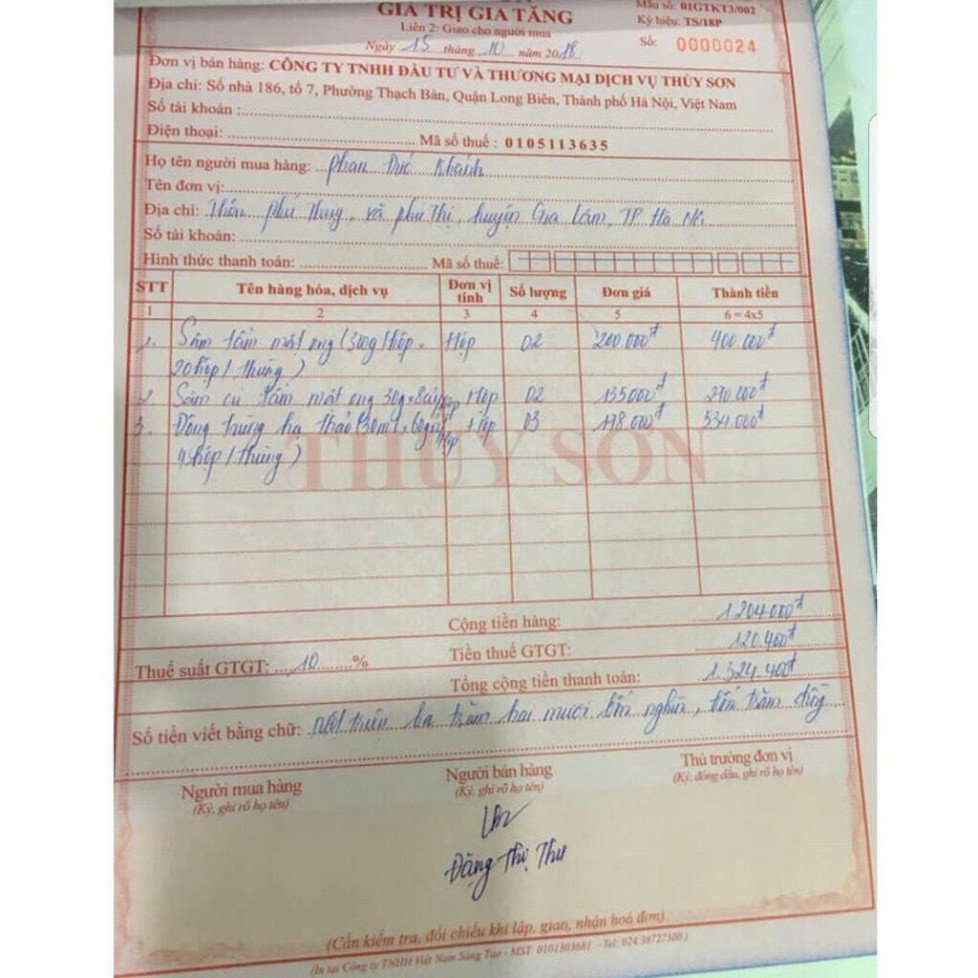 GIÁ TRỊ GIA TĂNG
Liên 2: Giao cho người mua
Ngày 15 tháng 10 năm 2018
Mẫu số: 01GTKT3/002
Ký hiệu: TS/18P
Số: 0000024
Đơn vị bán hàng: CÔNG TY TNHH ĐẦU TƯ VÀ THƯƠNG MẠI DỊCH VỤ THỦY SƠN
Địa chỉ: Số nhà 186, tổ 7, Phường Thạch Bàn, Quận Long Biên, Thành phố Hà Nội, Việt Nam
Số tài khoản:
Điện thoại: Mã số thuế: 0105113635
Họ tên người mua hàng: Phan Đức Khánh
Tên đơn vị:
Địa chỉ: Thôn Phú Thụy, xã Phú Thị, huyện Gia Lâm, TP Hà Nội
Số tài khoản:
Hình thức thanh toán: Mã số thuế:
STT Tên hàng hóa, dịch vụ Đơn vị tính Số lượng Đơn giá Thành tiền
1 2 3 4 5 6 = 4x5
1. Sâm tẩm mật ong (300g/hộp. Hộp 02 200.000đ 400.000đ
20hộp/thùng)
2. Sâm củ tẩm mật ong 30g x 8 Hộp 02 135000đ 270.000đ
3. Đông trùng hạ thảo (30ml x 60gói/hộp Hộp 03 178.000đ 534.000đ
4hộp/thùng)
THỦY SƠN
Cộng tiền hàng: 1.204.000đ
Thuế suất GTGT: 10 % Tiền thuế GTGT: 120.400đ
Tổng cộng tiền thanh toán: 1.324.400đ
Số tiền viết bằng chữ: Một triệu ba trăm hai mươi bốn nghìn, bốn trăm đồng
Người mua hàng Người bán hàng Thủ trưởng đơn vị
(Ký, ghi rõ họ tên) (Ký, ghi rõ họ tên) (Ký, đóng dấu, ghi rõ họ tên)
Đặng Thị Thư
(Cần kiểm tra, đối chiếu khi lập, giao, nhận hoá đơn)
(In tại Công ty TNHH Việt Nam Sáng Tạo - MST: 0101303681 - Tel: 024.38727300)